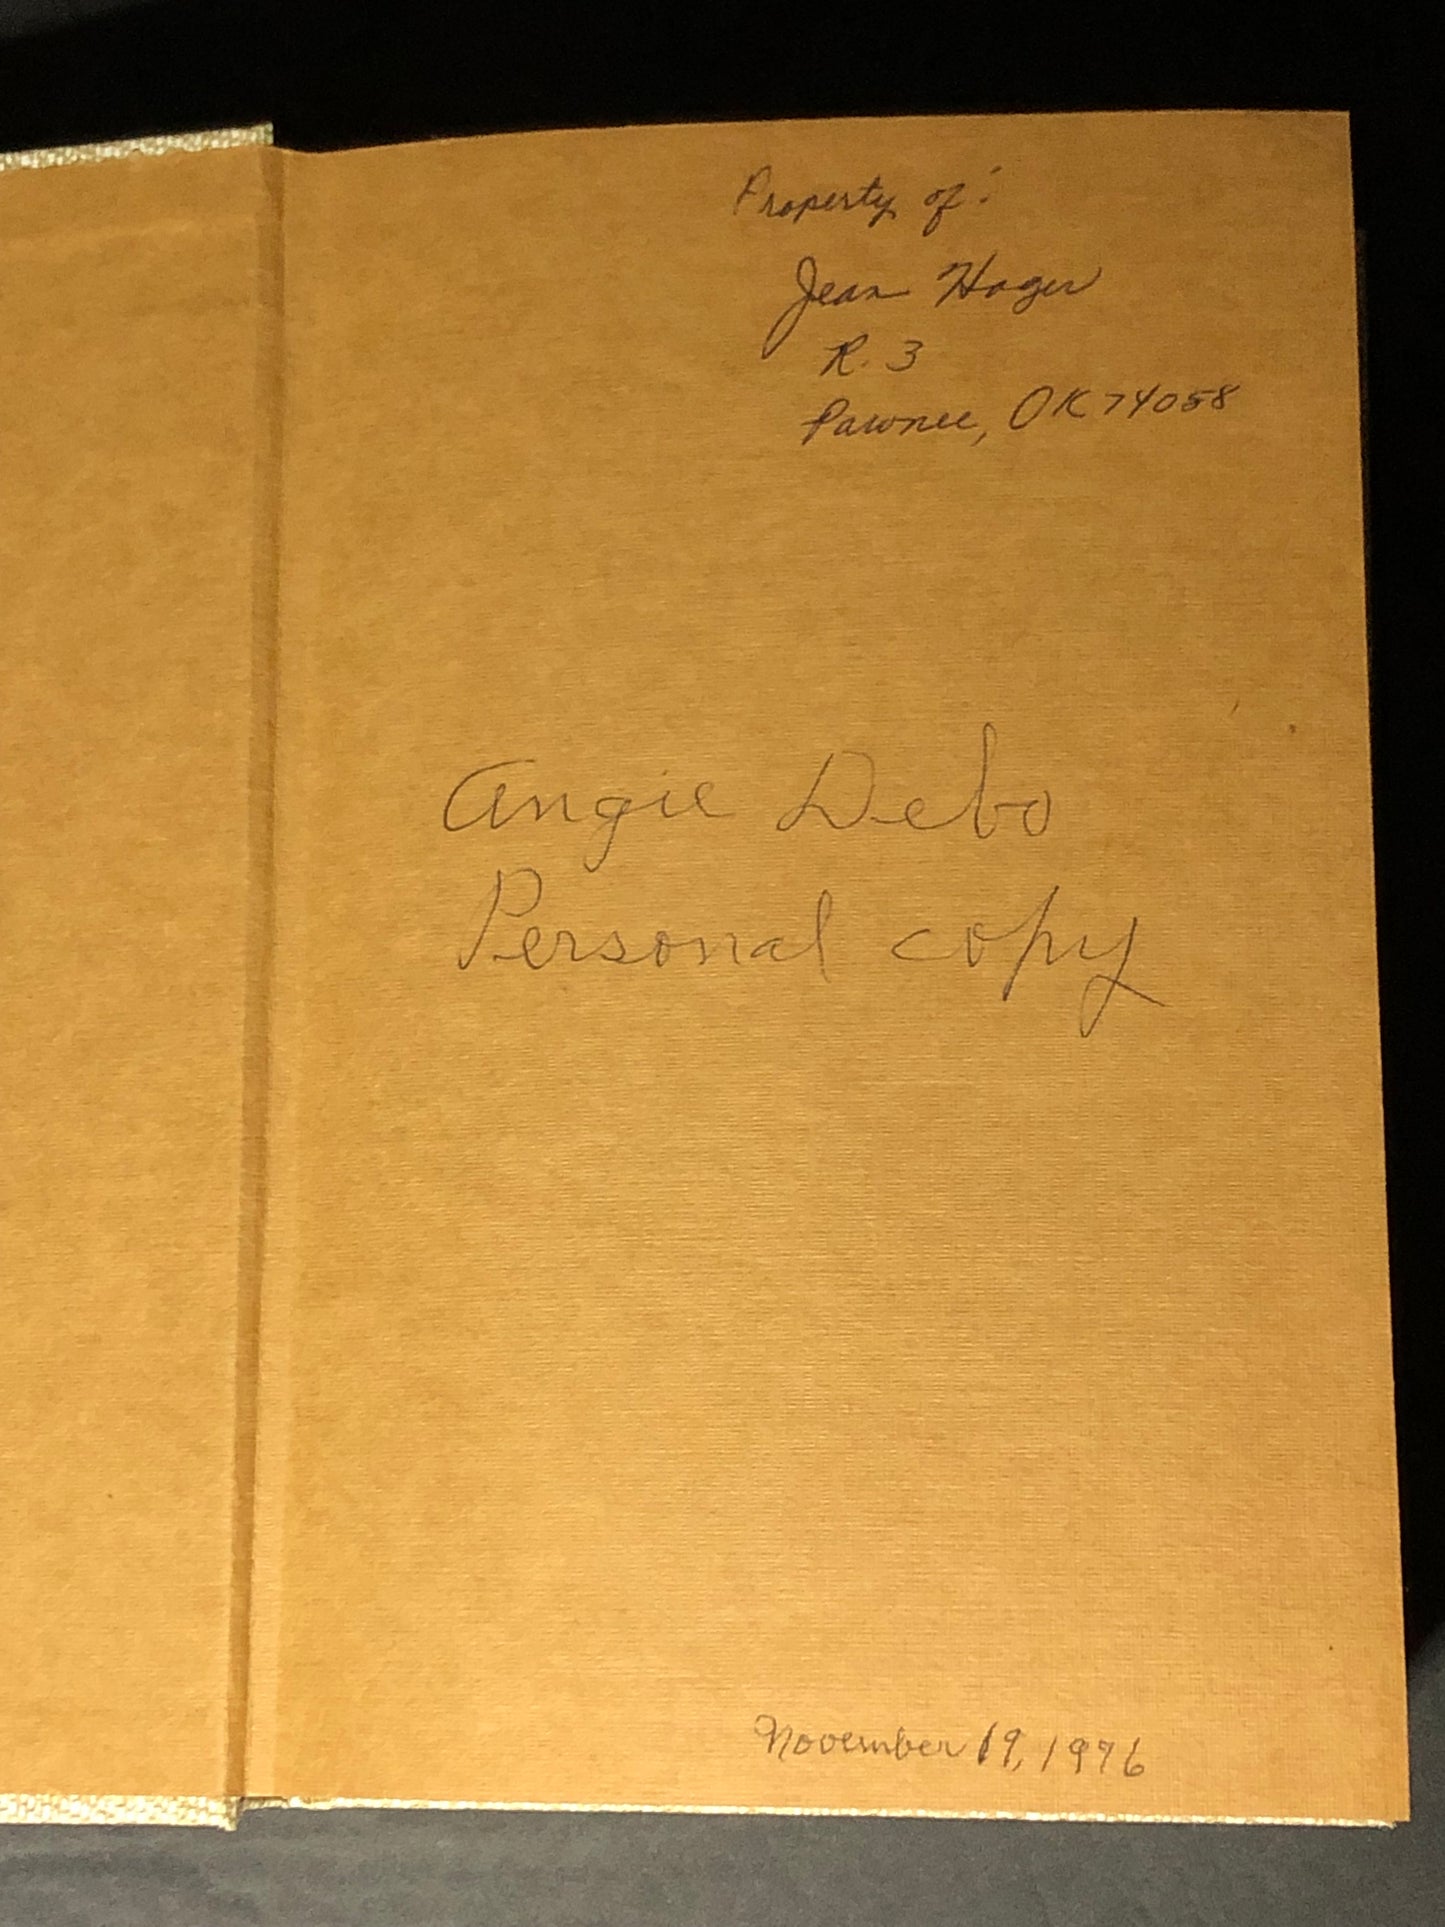 Property of:
Jean Hager
R. 3
Pawnee, OK 74058
Angie Debo
Personal copy
November 19, 1976